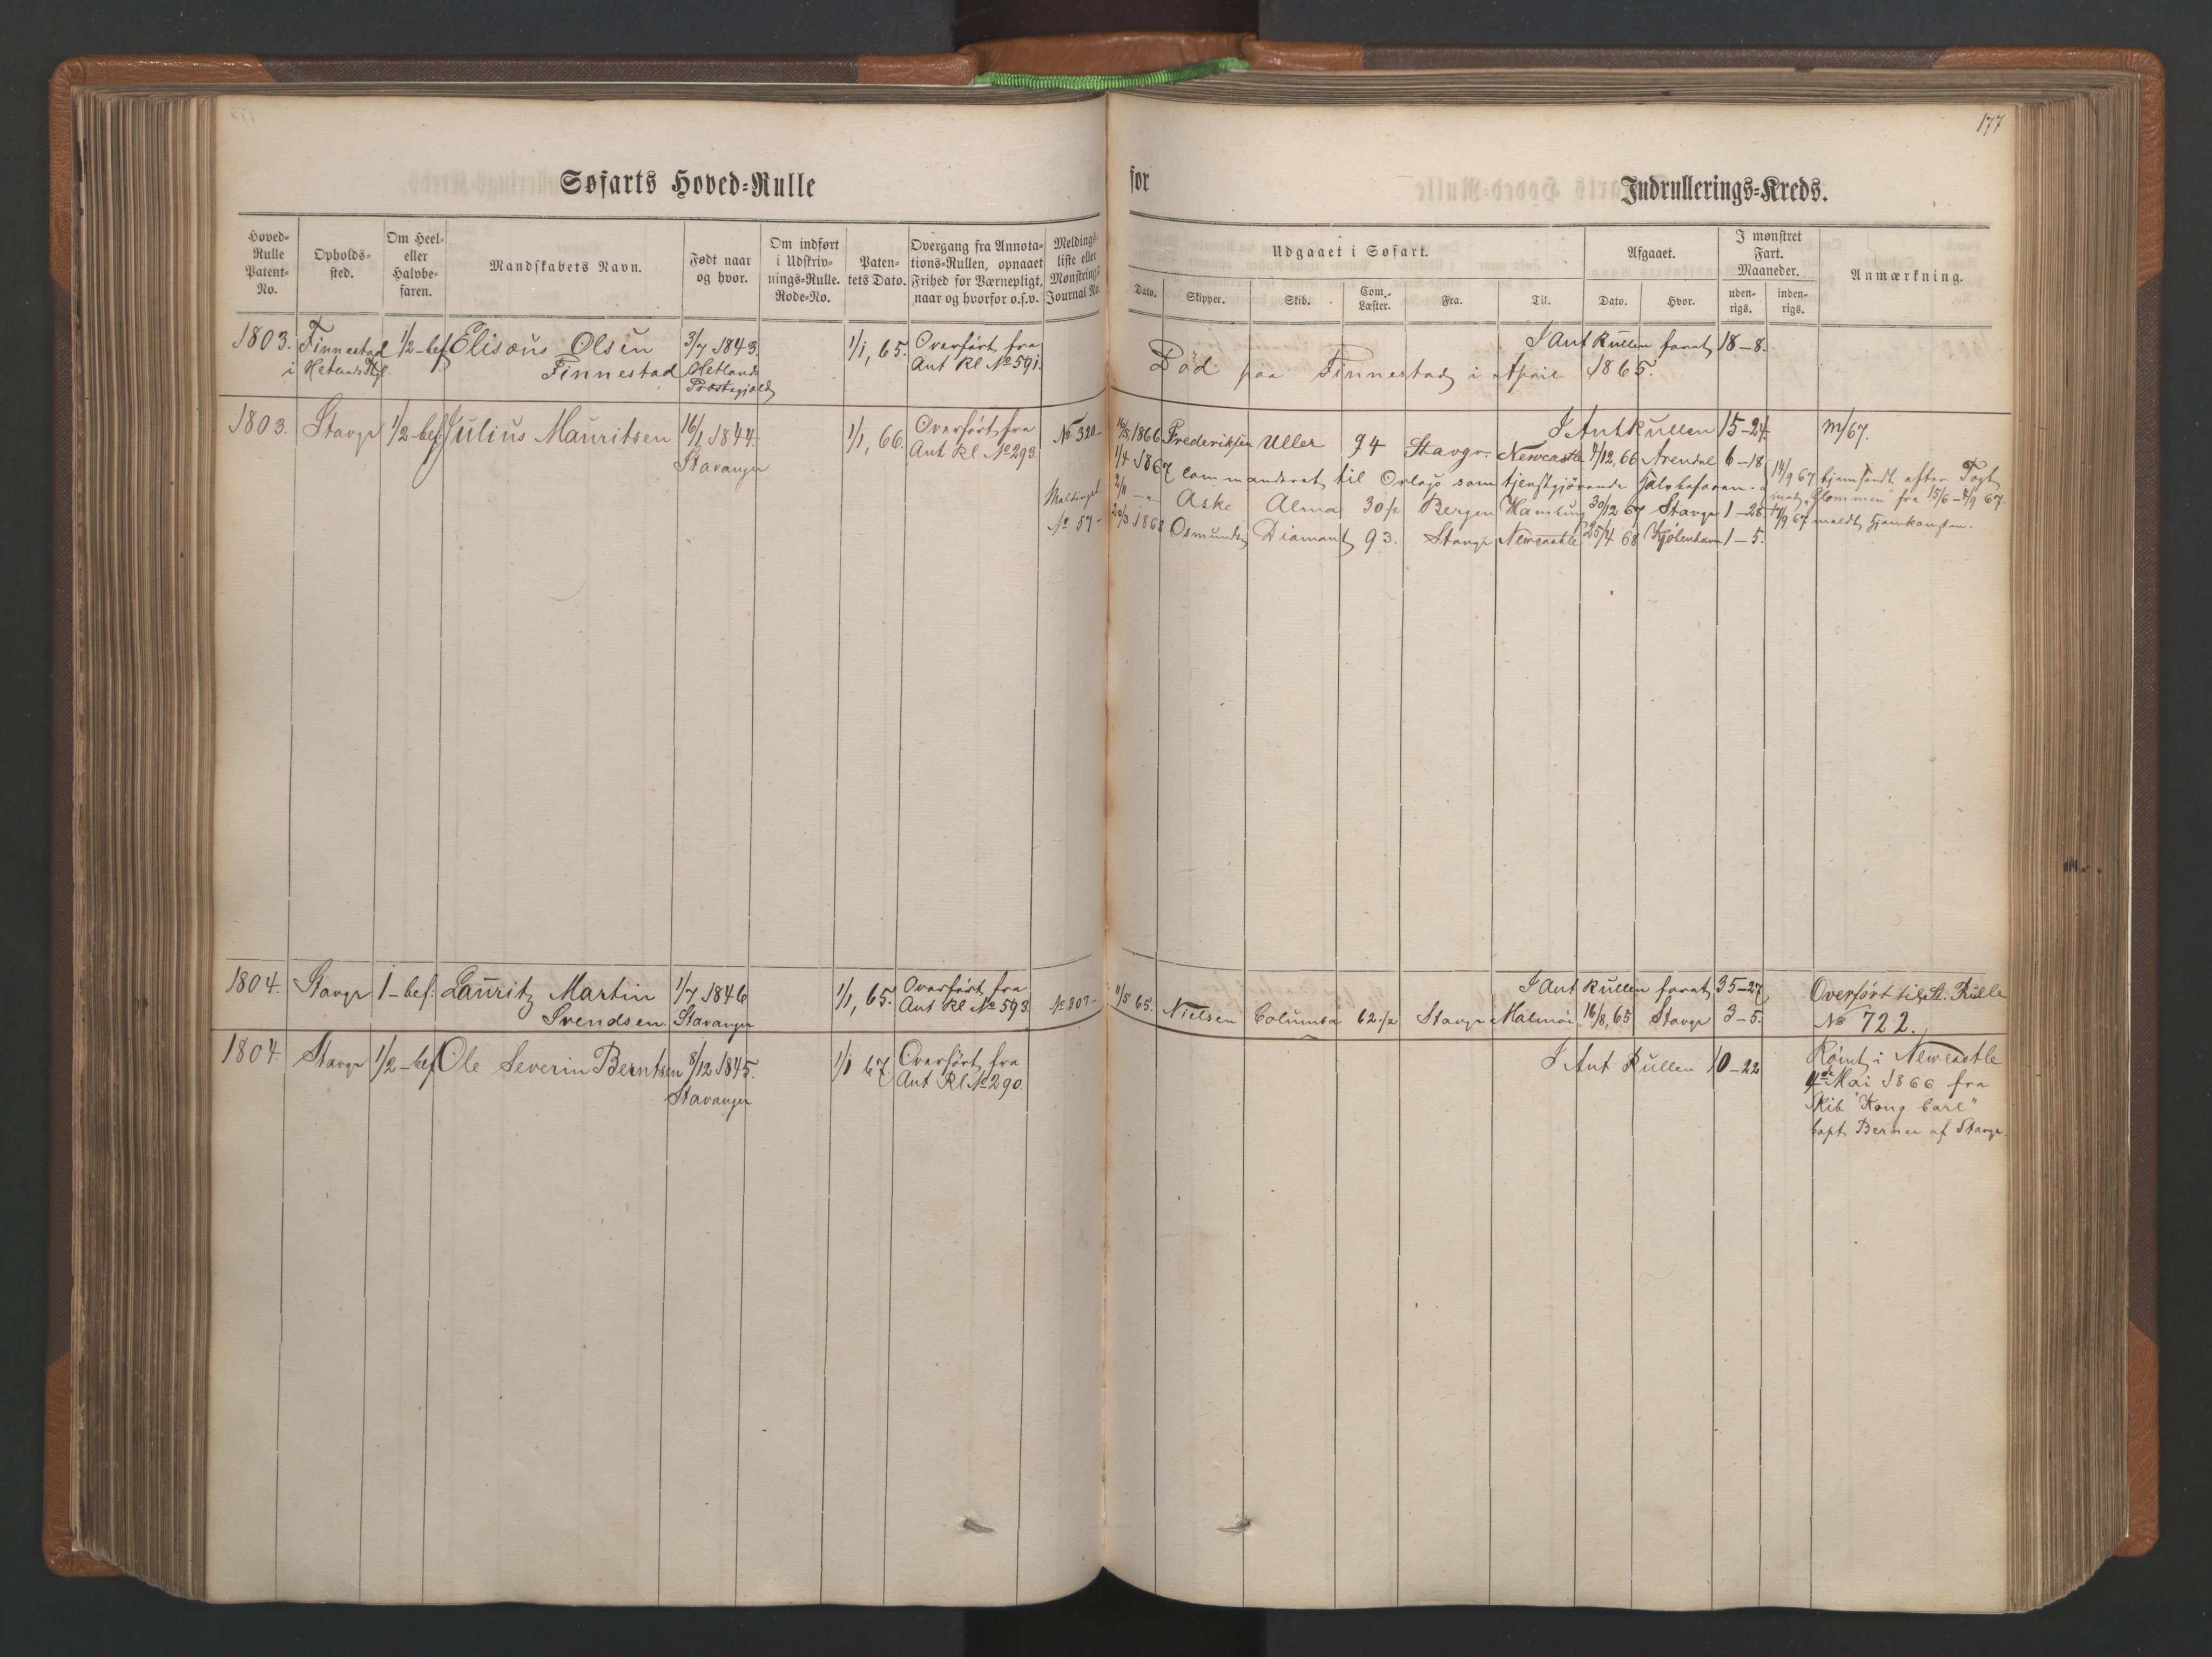 177
Søfarts Hoved-Rulle for Indrullerings-Kreds.
Hoved-Rulle Patent-No.
Opholds-sted.
Om Heel- eller Halvbe-faren.
Mandskabets Navn.
Født naar og hvor.
Om indført i Udskriv-nings-Rulle. Rode-No.
Paten-tets Dato.
Overgang fra Annota-tions-Rullen, opnaaet Frihed for Værnepligt, naar og hvorfor o.s.v.
Meldings-liste eller Mønstrings-Journal No.
Udgaaet i Søfart.
Dato.
Skipper.
Skib.
Com.-Læster.
Fra.
Til.
Afgaaet.
Dato.
Hvor.
I mønstret Fart. Maaneder.
uden-rigs.
inden-rigs.
Anmærkning.
1803. Finnestad 1/2-bef Elisæus Olsen 3/7 1843. 1/1, 65. Overført fra I Ant Rullen farat 18-8.
i Hetlands Finnestad Hetlands Ant Rl No 591. Død paa Finnestad i April 1865.
Præstegjeld
1803. Stavgr 1/2-bef Julius Mauritsen 16/1 1844. 1/1, 66. Overført fra No 320- I Ant Rullen 15-24. m/67.
Stavanger Ant Rl No 293 1866 Frederiksen Uller 94 Stavgr. Newcastle 4/12, 66 Arendal 6-18
1/4 1867 commanderet til Orlogs som tjenstgjørende halvbefaren. 14/9 67 hjemsendt efter Togt
Meldingsl. 2/11 -"- Aske Alma 30 1/2 Bergen Hamburg 30/12 67 Stavgr 1-28 med "Glommen" fra 15/6-4/9 67.
No 57- 20/3 1868 Osmundsen Diamant 93. Stavgr Newcastle 25/4 68 Kjøbenhavn 1-5. 17/9 67 meldt hjemkomsten.
1804. Stavgr 1-bef. Lauritz Martin 1/7 1846 1/1, 65. Overført fra I Ant Rullen farat 35-27 Overført til St. Rulle
Svendsen. Stavanger Ant Rl No 593 No 307- 11/5 65. Nielsen Columba 62 1/2 Stavgr Malmøi 16/8, 65 Stavgr 3-5. No 722.
1804. Stavgr 1/2-bef Ole Severin Berntsen 8/12 1845. 1/1 67. Overført fra I Ant Rullen 10-22 Rømt i Newcastle
Stavanger Ant Rl No 290. 4de Mai 1866 fra
Skib "Kong Carl"
Capt. Berner af Stavgr.